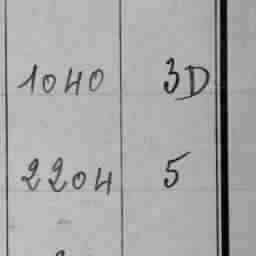 1040 3D
2204 5